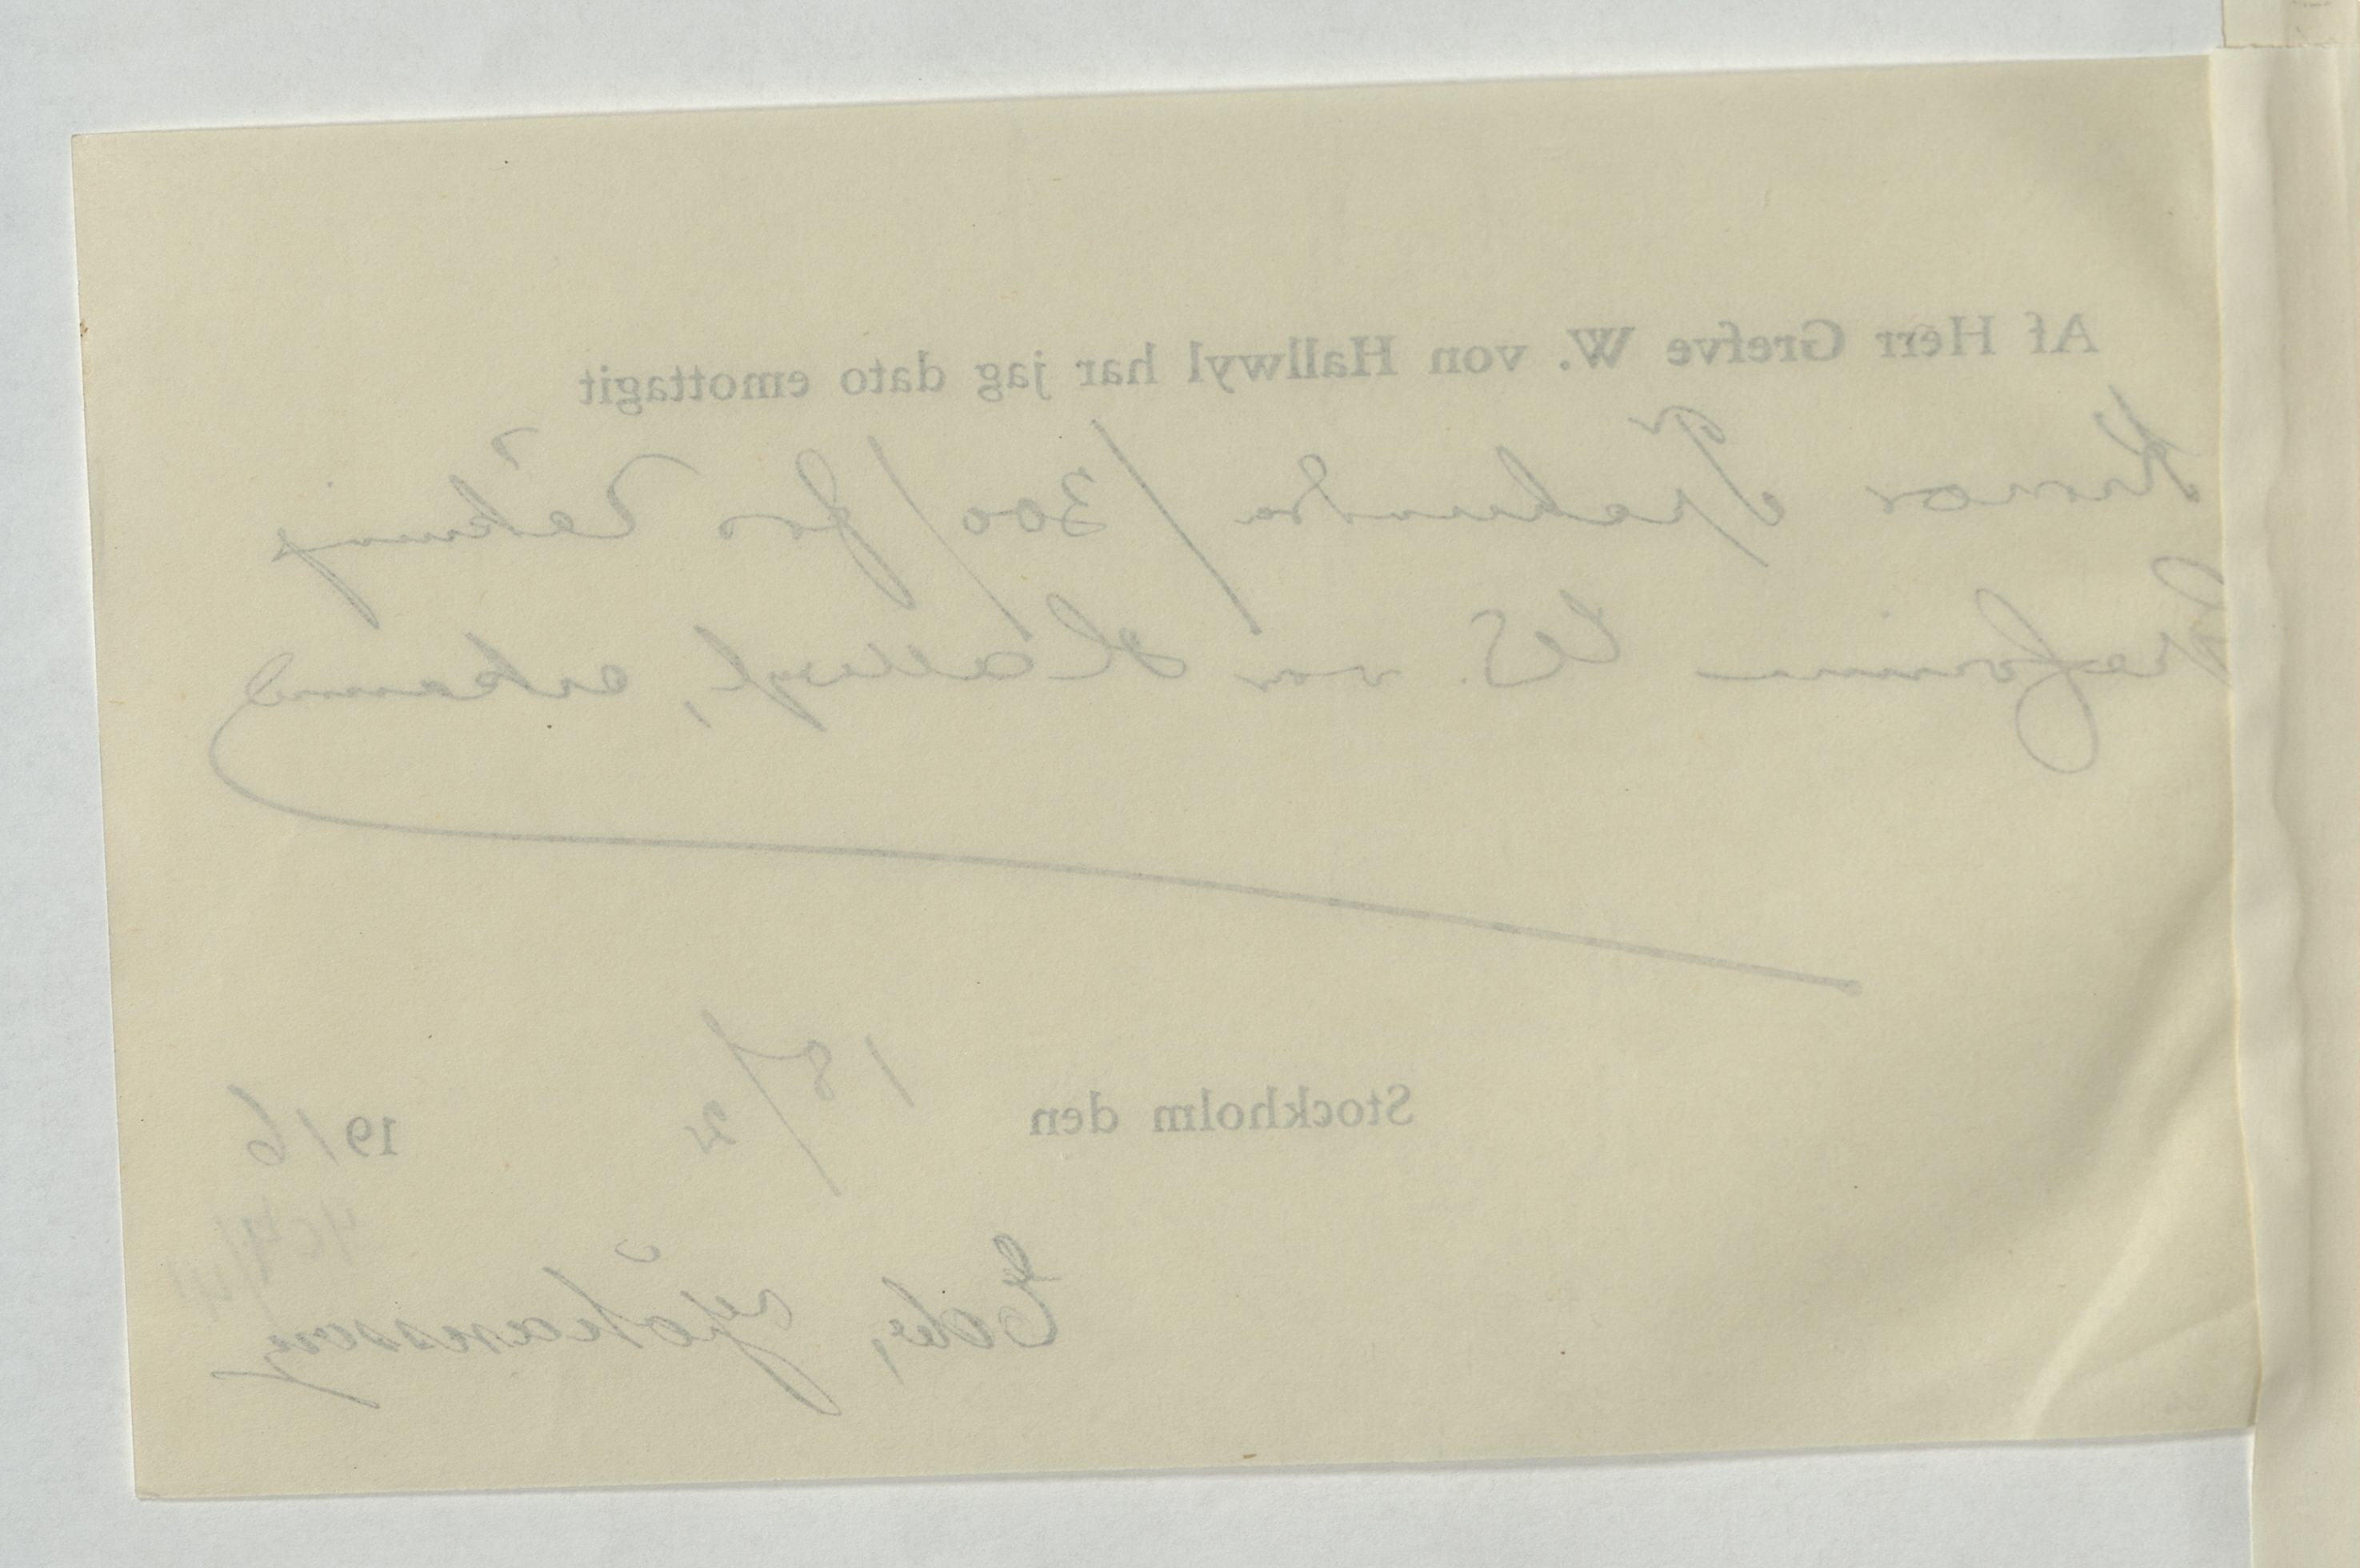 Af Herr Grefve W. von Hallwyl har jag dato emottagit
Kronor Trehundra /300/ för räkning
Grefvinnan W. von Hallwyl, erkännes
Stockholm den 18/2 1916
Edv. Johansson